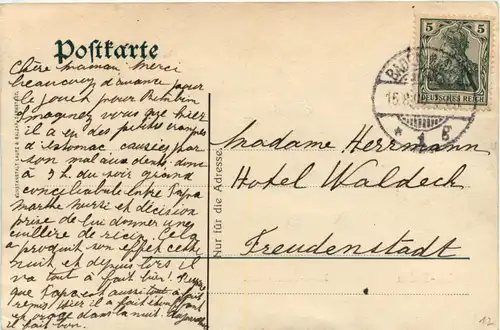 Postkarte
Chère maman Merci
beaucoup d'avance pour
le jouet pour Bimbin
Imaginez vous que hier
il a eu des petites crampes
d'estomac causées par
son mal aux dents, donc
à 3 h. du soir grand
conciliabule entre Papa
Marthe Nurse et décision
prise de lui donner une
cuillère de ricin cela
a produit son effet cette
nuit et depuis lors il
va tout à fait bien!
que Papa est aussi tout à fait
remis! Hier il a fait
un orage dans la nuit.
il fait bon.
Nur für die Adresse.
Madame Herrmann
Hotel Waldeck
Freudenstadt
5 5
DEUTSCHES REICH
BADEN
15.8
* 1 B
12